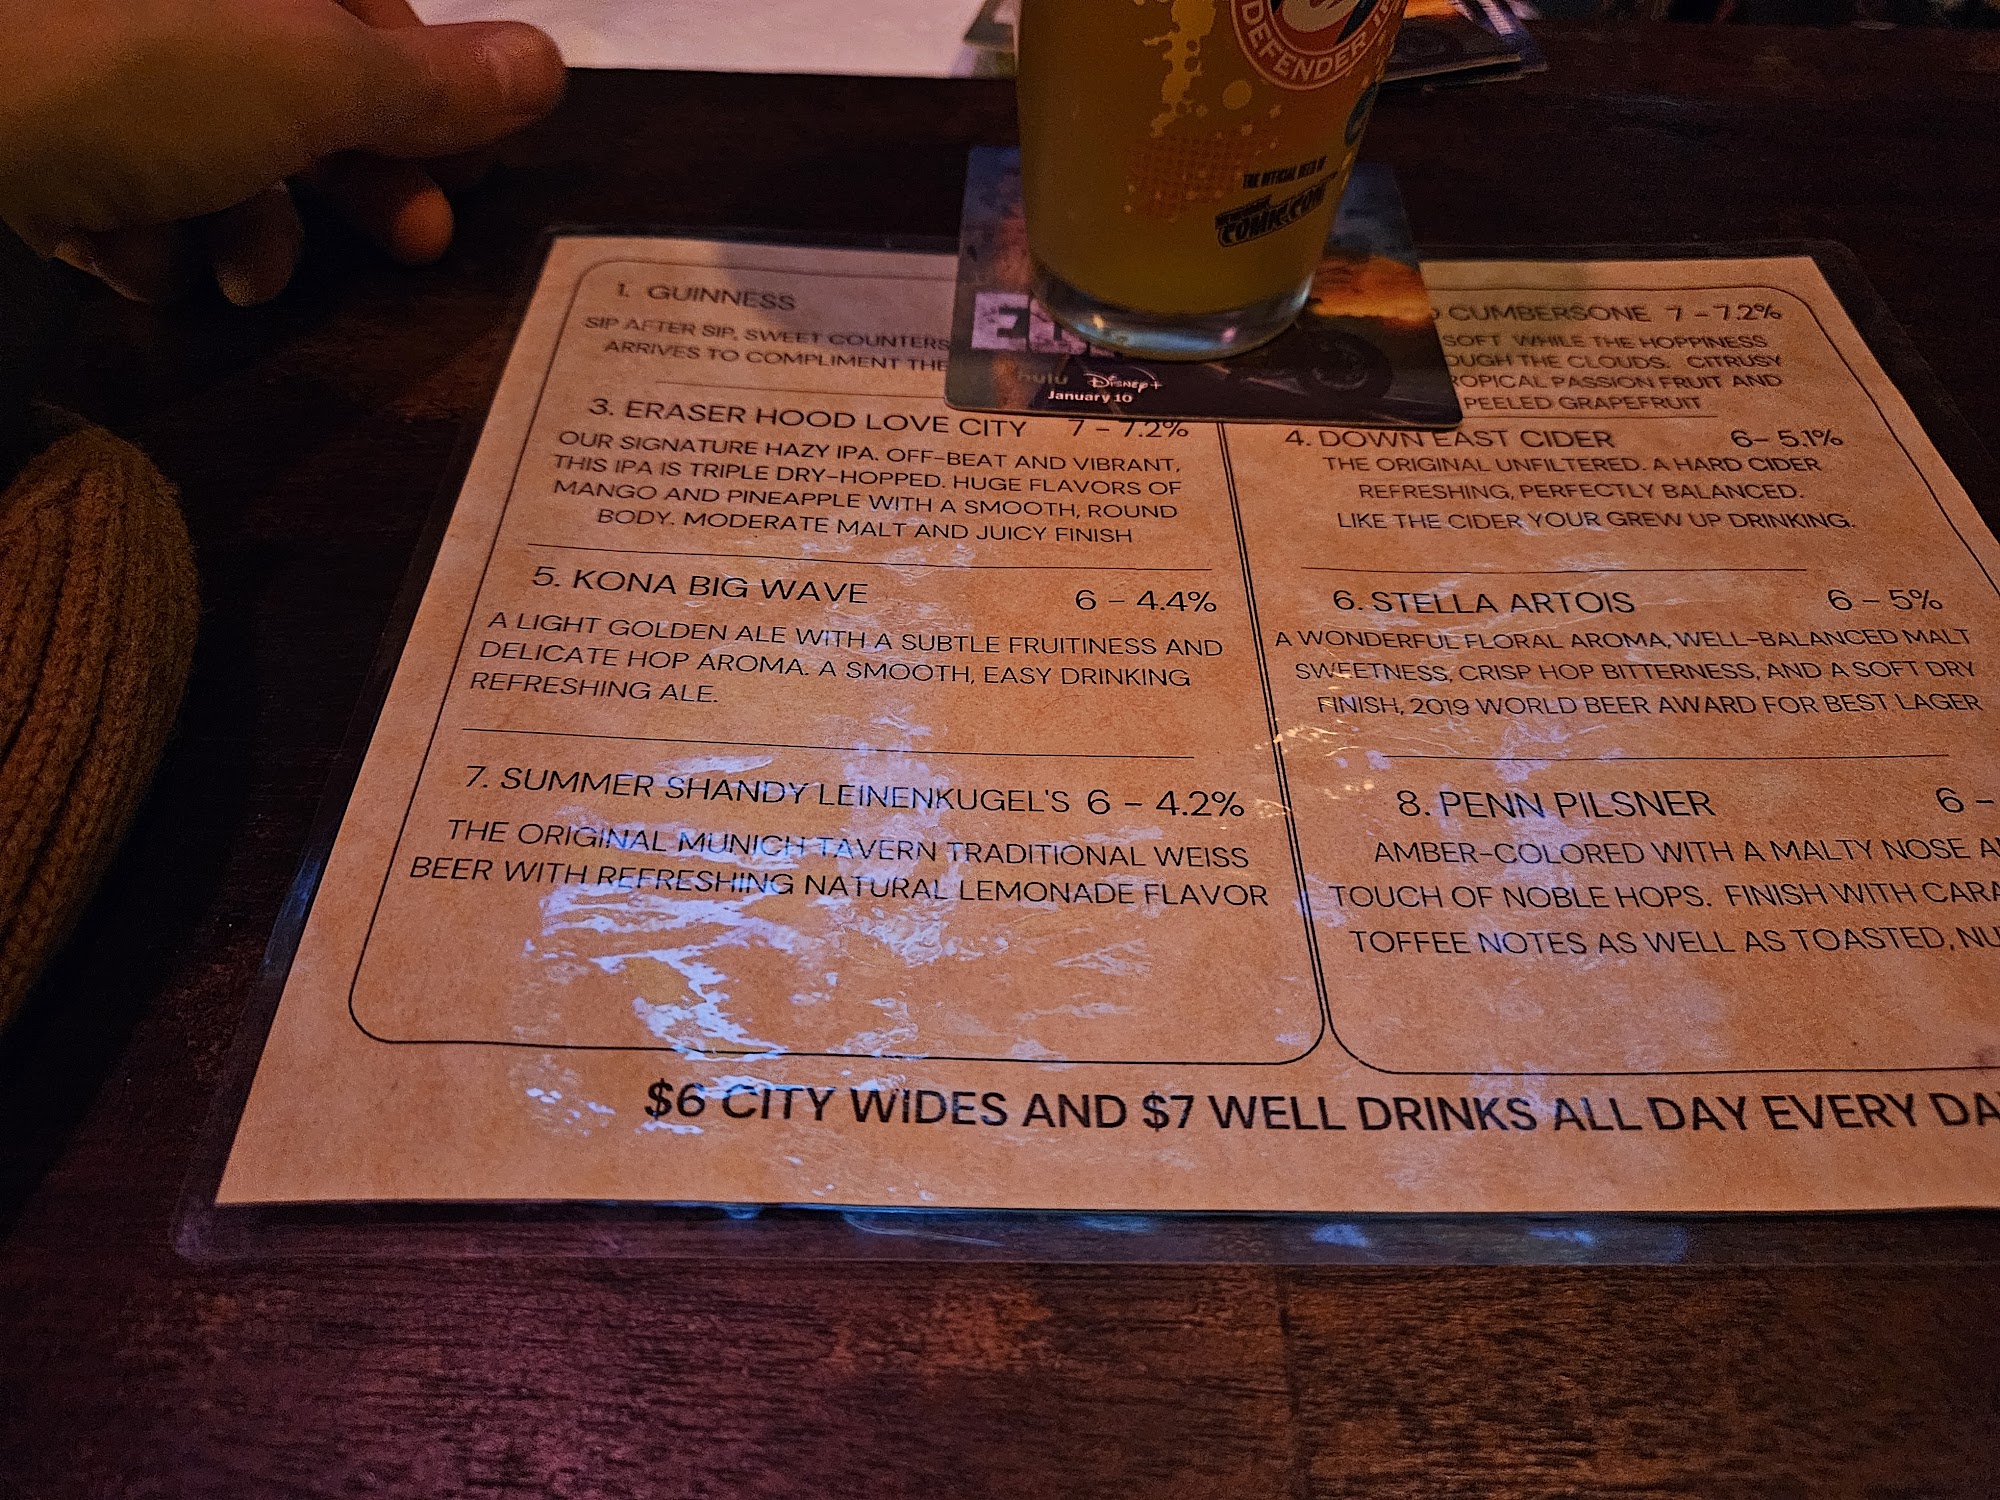 DEFENDER
THE OFFICIAL BEER OF
COMIC CON
hulu Disney+
January 10
1. GUINNESS
SIP AFTER SIP, SWEET COUNTERS
ARRIVES TO COMPLIMENT THE
CUMBERSONE 7 - 7.2%
SOFT WHILE THE HOPPINESS
THE CLOUDS. CITRUSY
PASSION FRUIT AND
PEELED GRAPEFRUIT
3. ERASER HOOD LOVE CITY 7 - 7.2%
OUR SIGNATURE HAZY IPA. OFF-BEAT AND VIBRANT,
THIS IPA IS TRIPLE DRY-HOPPED. HUGE FLAVORS OF
MANGO AND PINEAPPLE WITH A SMOOTH, ROUND
BODY. MODERATE MALT AND JUICY FINISH
4. DOWN EAST CIDER 6- 5.1%
THE ORIGINAL UNFILTERED. A HARD CIDER
REFRESHING, PERFECTLY BALANCED.
LIKE THE CIDER YOUR GREW UP DRINKING.
5. KONA BIG WAVE 6 - 4.4%
A LIGHT GOLDEN ALE WITH A SUBTLE FRUITINESS AND
DELICATE HOP AROMA. A SMOOTH, EASY DRINKING
REFRESHING ALE.
6. STELLA ARTOIS 6 - 5%
A WONDERFUL FLORAL AROMA, WELL-BALANCED MALT
SWEETNESS, CRISP HOP BITTERNESS, AND A SOFT DRY
FINISH, 2019 WORLD BEER AWARD FOR BEST LAGER
7. SUMMER SHANDY LEINENKUGEL'S 6 - 4.2%
THE ORIGINAL MUNICH TAVERN TRADITIONAL WEISS
BEER WITH REFRESHING NATURAL LEMONADE FLAVOR
8. PENN PILSNER 6 -
AMBER-COLORED WITH A MALTY NOSE
TOUCH OF NOBLE HOPS. FINISH WITH
TOFFEE NOTES AS WELL AS TOASTED,
$6 CITY WIDES AND $7 WELL DRINKS ALL DAY EVERY